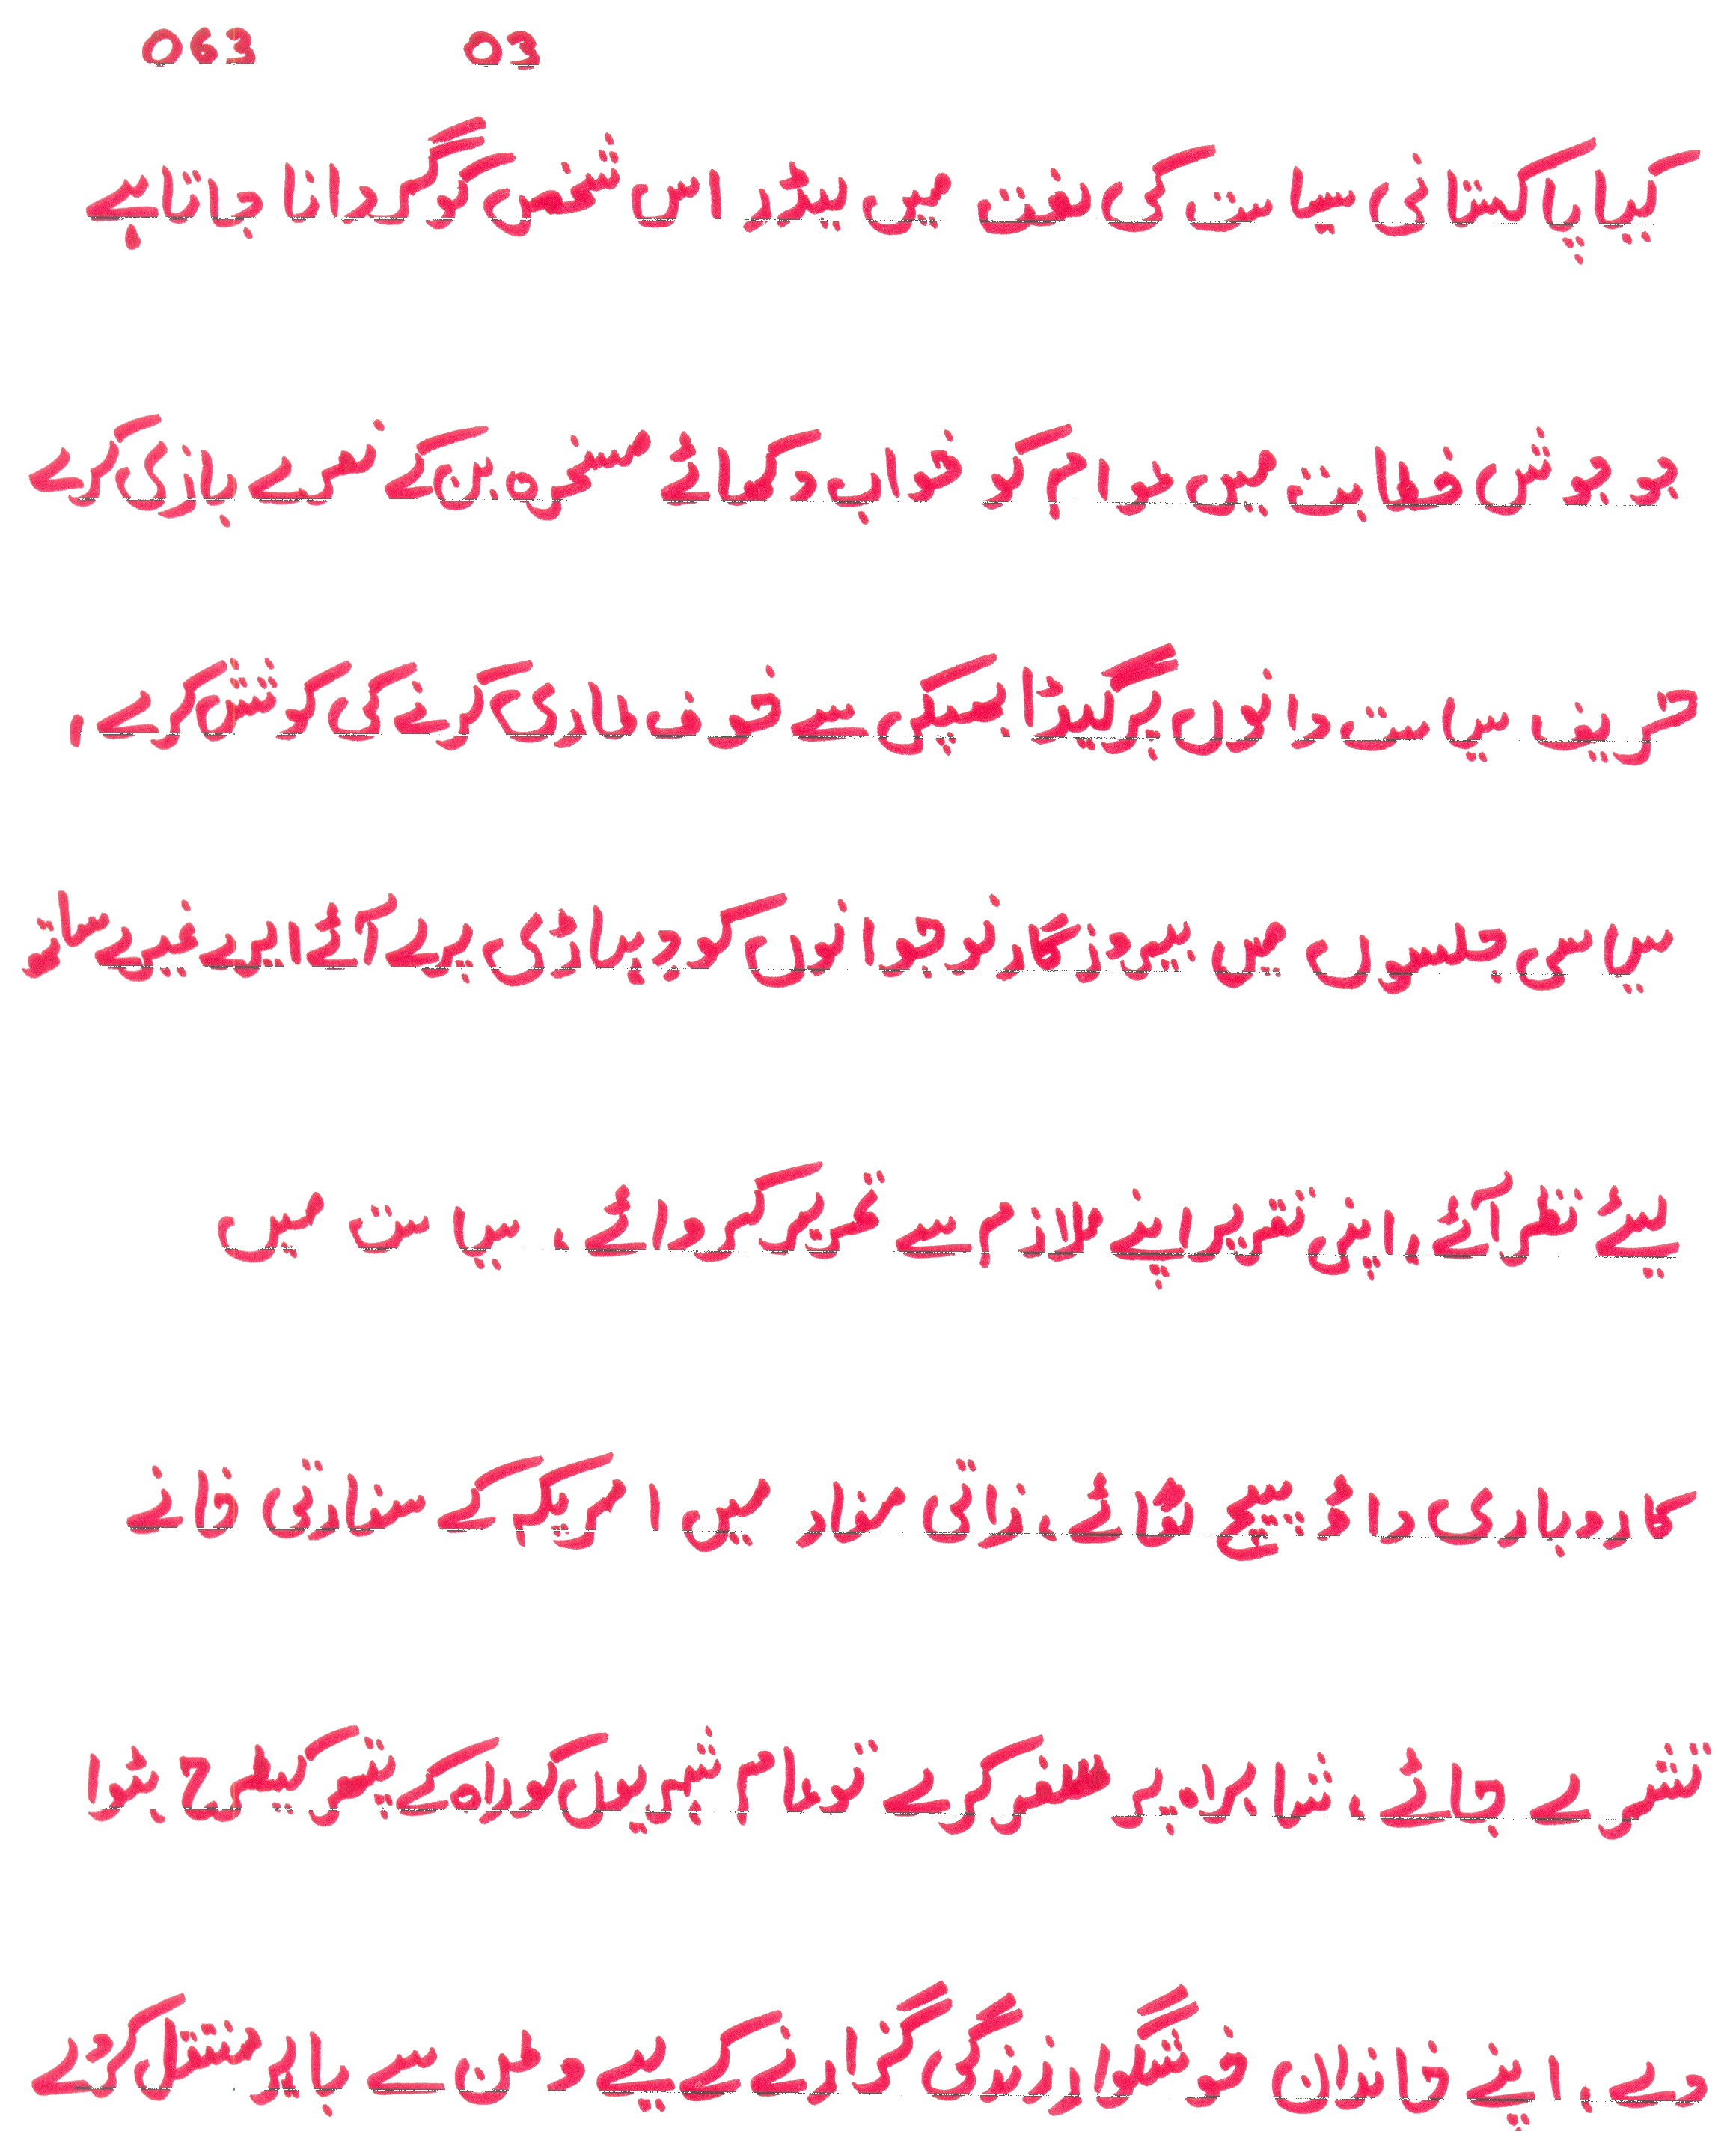 063 03
کیا پاکستانی سیاست کی لغت میں لیڈر اس شخص کو گردانا جاتا ہے
جو جوش خطابت میں عوام کو خواب دکھائے مسخرہ بن کے نعرے بازی کرے
شریف سیاست دانوں پر گیڈر بھبکی سے خوف طاری کرنے کی کوشش کرے ،
سیاسی جلسوں میں بیروزگار نوجوانوں کو دہاڑی پر لے آئے ایرے غیرے ساتھ
لیئے نظر آئے ، اپنی تقریر اپنے ملازم سے تحریر کروائے ، سیاست میں
کاروباری داؤ پیچ لگائے ، ذاتی مفاد میں امریکہ کے سفارتی خانے
تشرے جائے ، شاہراہ پر سفر کرے تو عام شہریوں کو راہ کے پتھر کیطرح ہٹوا
دے ، اپنے خاندان خوشگوار زندگی گزارنے کے لیے وطن سے باہر منتقل کردے